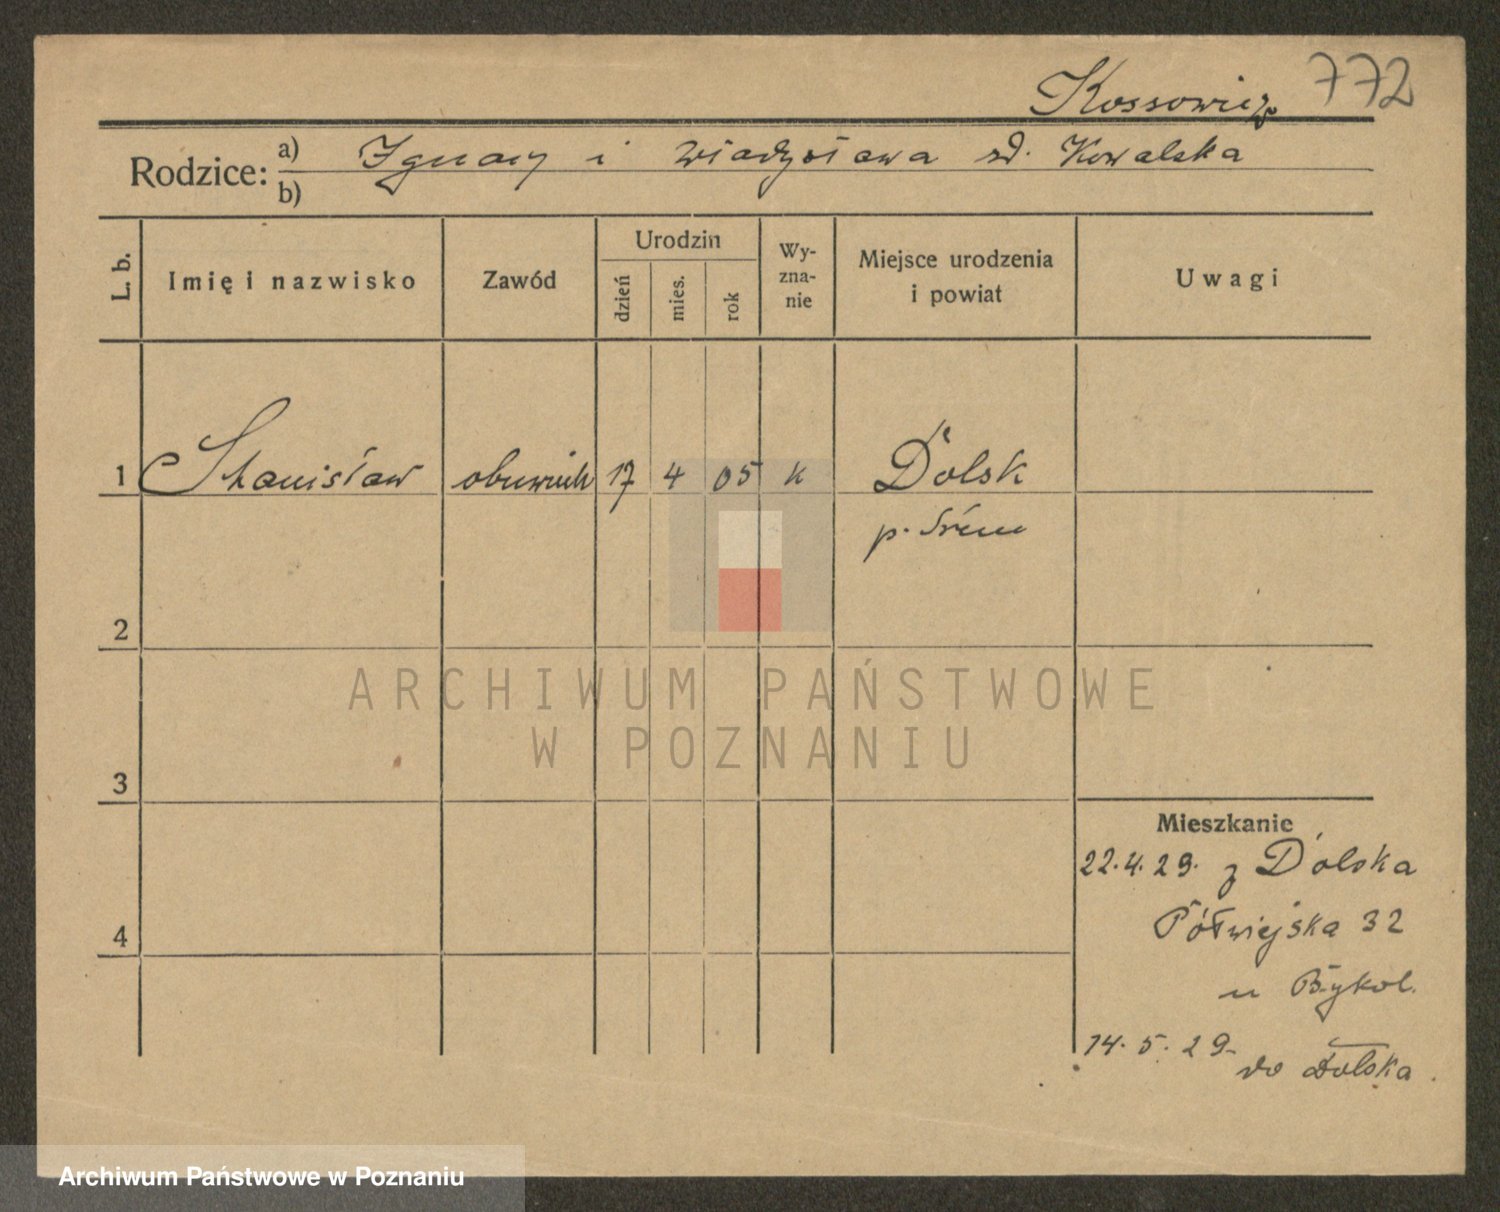 Kossowicz 772
Rodzice: a) Ignacy i Władysława zd. Kowalska
b)
L. b. Imię i nazwisko Zawód Urodzin dzień mies. rok Wy-zna-nie Miejsce urodzenia i powiat Uwagi
1 Stanisław obuwnik 17 4 05 k Dolsk
p. Śrem
2
ARCHIWUM PAŃSTWOWE
W POZNANIU
3
Mieszkanie
22.4.29. z Dolska
4 Półwiejska 32
u Bykol.
14.5.29- do Dolska.
Archiwum Państwowe w Poznaniu